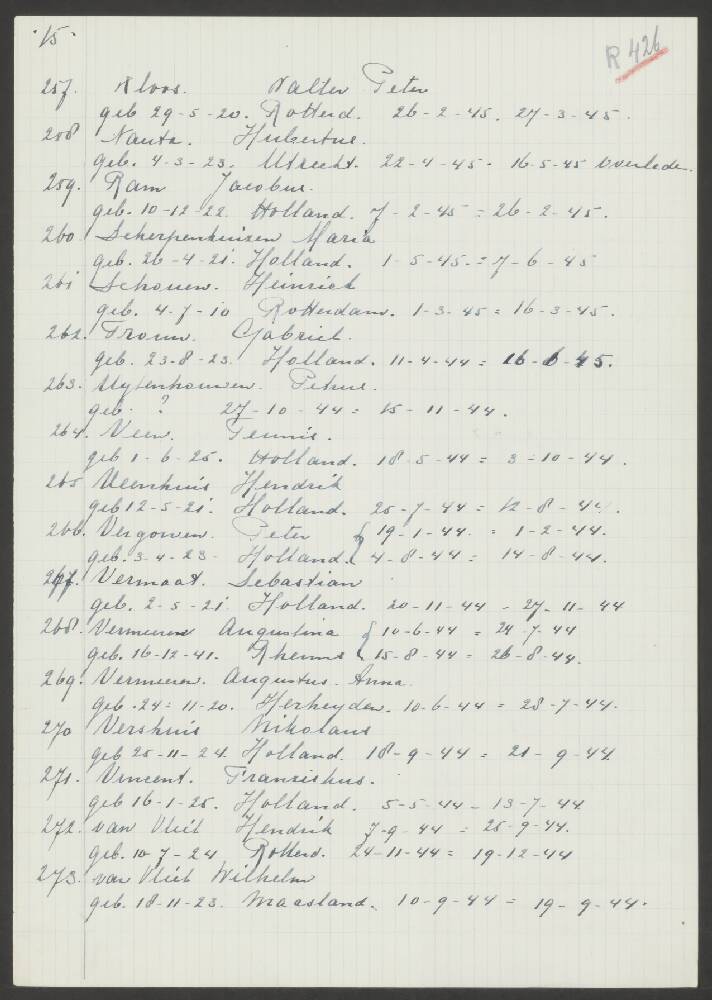 15.
R 426
257. Kloos. Walter Peter
geb 29-5-20. Rotterd. 26-2-45. 27-3-45.
258 Nauta. Hubertus.
geb. 4-3-23. Utrecht. 22-4-45. 16-5-45 overleden.
259. Ram Jacobus.
geb. 10-12-22. Holland. 7-2-45 = 26-2-45.
260 Scherpenhuizen Maria
geb. 26-4-21. Holland. 1-5-45. = 7-6-45
261 Schouen. Heinrich
geb. 4-7-10 Rotterdam. 1-3-45 = 16-3-45.
262. Fromm. Gabriel.
geb. 23-8-23. Holland. 11-4-44 = 16-6-45.
263. Uytenhouwen. Petrus.
geb. ? 27-10-44 = 15-11-44.
264. Veen. Teunis.
geb 1-6-25. Holland. 18-5-44 = 3-10-44.
265 Veenhuis Hendrik
geb 12-5-21. Holland. 25-7-44 = 12-8-44.
266. Vergouwen. Peter { 19-1-44. = 1-2-44.
geb. 3-4-23. Holland. { 4-8-44 = 14-8-44.
267. Vermaat. Sebastian
geb. 2-5-21. Holland. 20-11-44 - 27-11-44
268. Vermeuren Augustina { 10-6-44 = 24-7-44
geb. 16-12-41. Rhenus { 15-8-44 = 26-8-44.
269. Vermeeren. Augustus. Anna.
geb. 24-11-20. Herheyden. 10-6-44 = 28-7-44.
270 Vershuis Nikolaus
geb 25-11-24. Holland. 18-9-44 = 21-9-44.
271. Vincent. Franziskus.
geb 16-1-25. Holland. 5-5-44 - 13-7-44
272. van Vliet Hendrik 7-9-44 = 25-9-44.
geb. 10-7-24 Rotterd. 24-11-44 = 19-12-44
273. van Vliet Wilhelm
geb. 18-11-23. Maasland. 10-9-44 = 19-9-44.